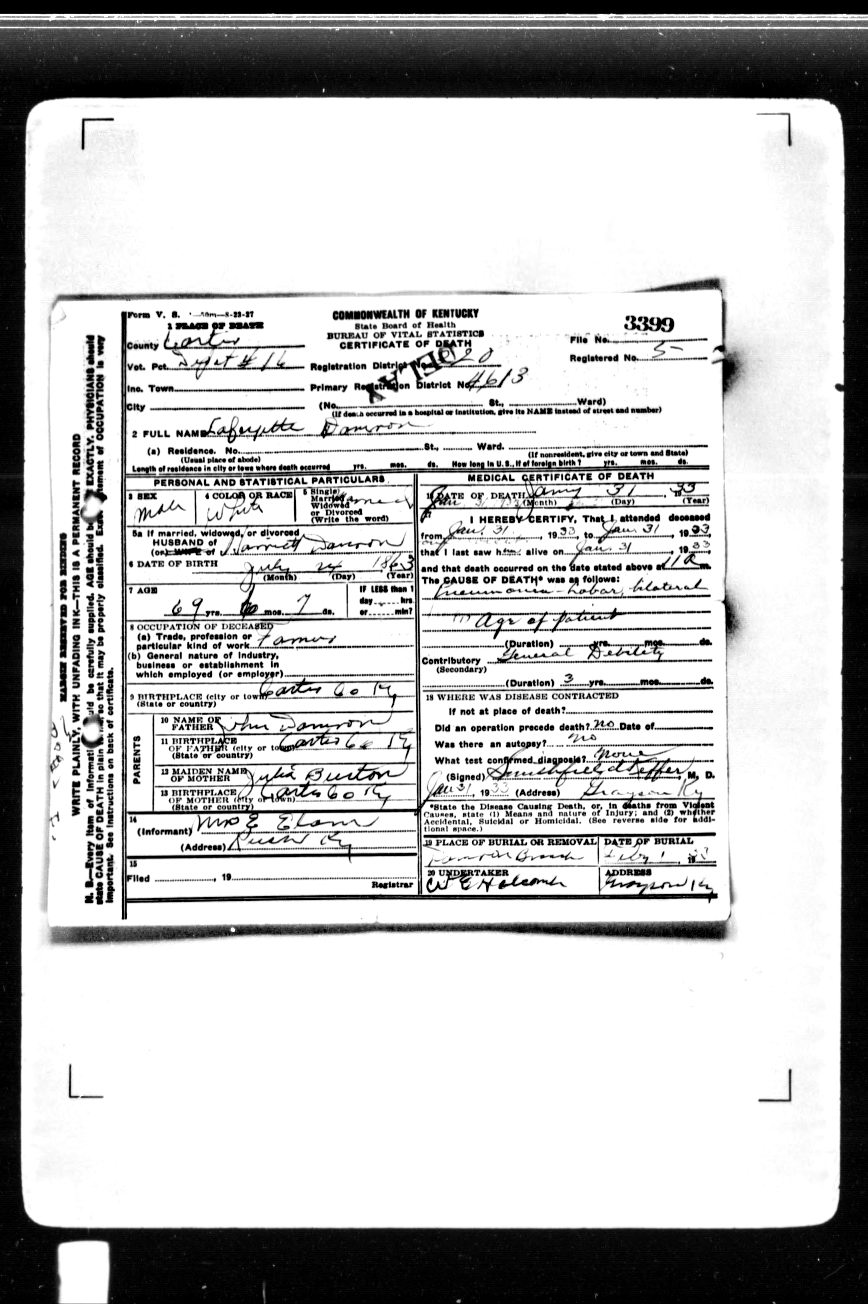 Form V. S. 1-50m-8-23-27
COMMONWEALTH OF KENTUCKY
State Board of Health
BUREAU OF VITAL STATISTICS
CERTIFICATE OF DEATH
3399
File No.
Registered No. 5
1 PLACE OF DEATH
County Carter
Vot. Pct. # 16
Registration District No. 20
DELAY
Inc. Town
Primary Registration District No. 4613
City
(No. St., Ward)
(If death occurred in a hospital or institution, give its NAME instead of street and number)
2 FULL NAME Lafayette Damron
(a) Residence. No. St., Ward.
(Usual place of abode)
(If nonresident, give city or town and State)
Length of residence in city or town where death occurred yrs. mos. ds. How long in U. S., if of foreign birth? yrs. mos. ds.
PERSONAL AND STATISTICAL PARTICULARS
3 SEX
Male
4 COLOR OR RACE
White
5 Single, Married, Widowed or Divorced (Write the word)
Married
5a If married, widowed, or divorced
HUSBAND of Damron
(or) WIFE of
6 DATE OF BIRTH July 24 1863
(Month) (Day) (Year)
7 AGE
69 yrs. 6 mos. 7 ds.
IF LESS than 1
day hrs.
or min?
8 OCCUPATION OF DECEASED
(a) Trade, profession or
particular kind of work Farmer
(b) General nature of industry,
business or establishment in
which employed (or employer)
9 BIRTHPLACE (city or town) Carter Co Ky
(State or country)
PARENTS
10 NAME OF
FATHER John Damron
11 BIRTHPLACE
OF FATHER (city or town) Carter Co Ky
(State or country)
12 MAIDEN NAME
OF MOTHER Julia Burton
13 BIRTHPLACE
OF MOTHER (city or town) Carter Co Ky
(State or country)
14
(Informant) Mrs E Elam
(Address) Rush Ky
15
Filed , 19
Registrar
MEDICAL CERTIFICATE OF DEATH
16 DATE OF DEATH Jany 31, 1933
(Month) (Day) (Year)
17
I HEREBY CERTIFY, That I attended deceased
from Jan. 31, 1933, to Jan. 31, 1933
that I last saw him alive on Jan. 31, 1933
and that death occurred on the date stated above at 11 a m.
The CAUSE OF DEATH* was as follows:
Pneumonia - Lobar, bilateral
Age of patient
(Duration) yrs. mos. ds.
Contributory General Debility
(Secondary)
(Duration) 3 yrs. mos. ds.
18 WHERE WAS DISEASE CONTRACTED
If not at place of death?
Did an operation precede death? no Date of
Was there an autopsy? no
What test confirmed diagnosis? none
(Signed) , M. D.
Jan 31, 1933 (Address) Grayson Ky
*State the Disease Causing Death, or, in deaths from Violent
Causes, state (1) Means and nature of Injury; and (2) whether
Accidental, Suicidal or Homicidal. (See reverse side for addi-
tional space.)
19 PLACE OF BURIAL OR REMOVAL
Damron Branch
DATE OF BURIAL
Feby 1, 1933
20 UNDERTAKER
W E Holcomb
ADDRESS
Grayson Ky
MARGIN RESERVED FOR BINDING
WRITE PLAINLY, WITH UNFADING INK—THIS IS A PERMANENT RECORD
N. B.—Every item of information should be carefully supplied. AGE should be EXACTLY. PHYSICIANS should
state CAUSE OF DEATH in plain so that it may be properly classified. Exact statement of OCCUPATION is very
important. See instructions on back of certificate.